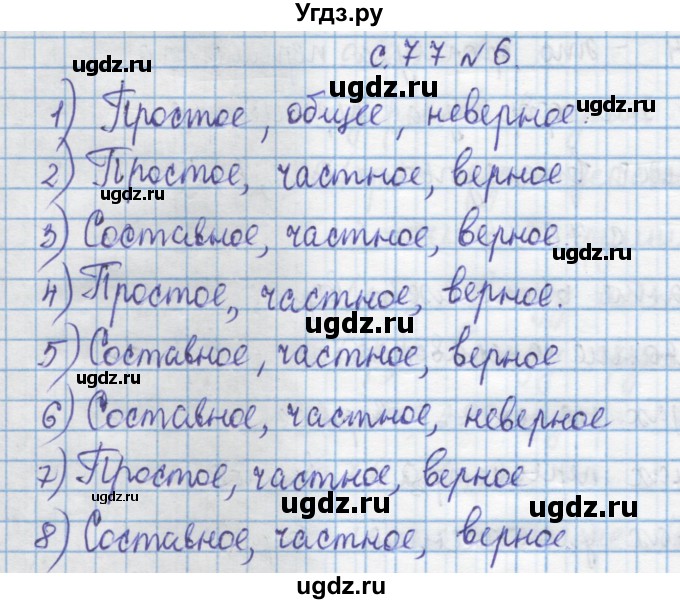 Угдз.ру
с. 77 № 6.
ugdz.ru ugdz.ru
1) Простое, общее, неверное.
ugdz.ru
2) Простое, частное, верное.
ugdz.ru
3) Составное, частное, верное.
ugdz.ru
4) Простое, частное, верное.
ugdz.ru
5) Составное, частное, верное
ugdz.ru
6) Составное, частное, неверное
7) Простое, частное, верное
ugdz.ru ugdz.ru
8) Составное, частное, верное.
ugdz.ru